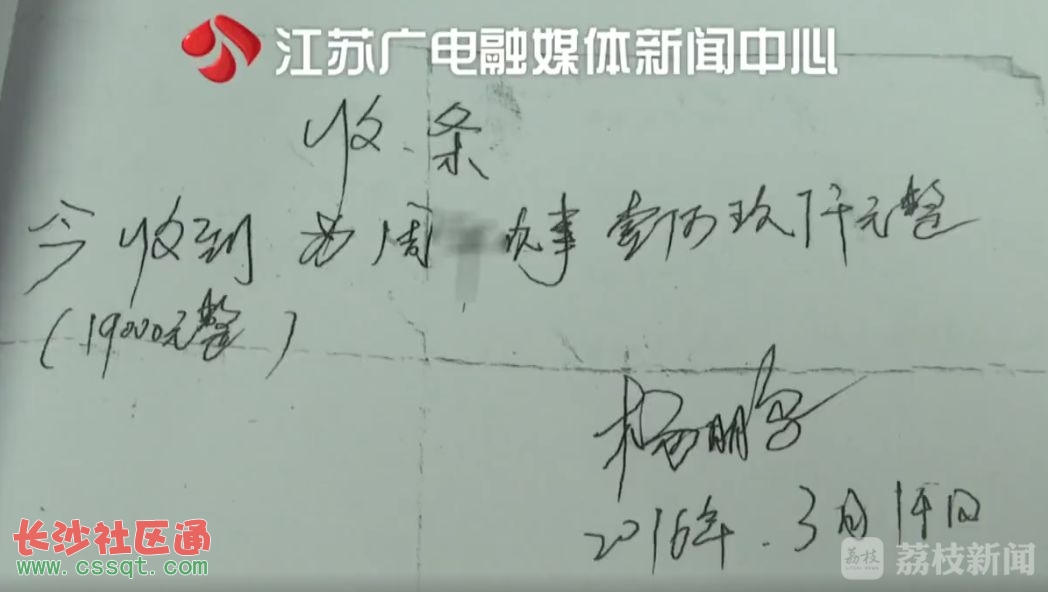 江苏广电融媒体新闻中心
收条
今收到 周 办事 壹万玖仟元整
(19000元整)
杨明
2016年.3月1日
长沙社区通
www.cssqt.com
荔枝 荔枝新闻